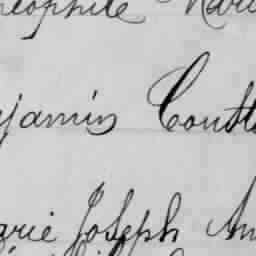 éophile Marie
jamin Constt
arie Joseph An